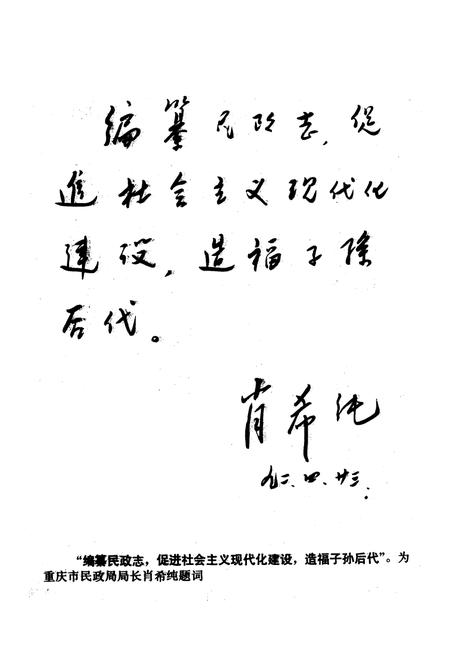 编纂民政志，促
進社会主义现代化
建设，造福子孫
后代。
肖希纯
九二.四.廿三.
“编纂民政志，促进社会主义现代化建设，造福子孙后代”。为
重庆市民政局局长肖希纯题词